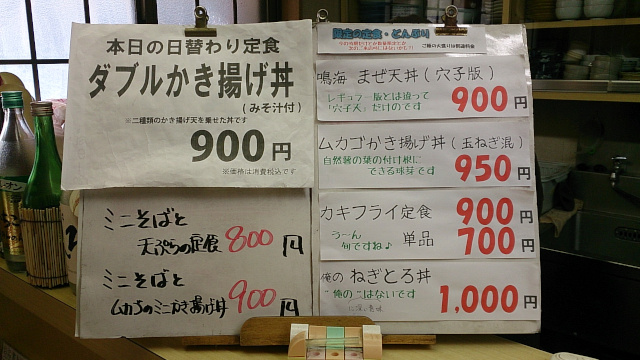 本日の日替わり定食
ダブルかき揚げ丼
(みそ汁付)
※二種類のかき揚げ天を乗せた丼です
900円
※価格は消費税込です
ミニそばと
天ぷらの定食 800円
ミニそばと
ムカゴのミニかき揚げ丼 900円
限定の定食・どんぶり
ご飯の大盛りは別途料金
鳴海 まぜ天丼(穴子版)
レギュラー版とは違って
「穴子天」だけのです
900円
ムカゴかき揚げ丼(玉ねぎ混)
自然薯の葉の付け根に
できる球芽です
950円
カキフライ定食 900円
うーん
旬ですね♪
単品 700円
俺の ねぎとろ丼
"俺の"ではないです
1,000円